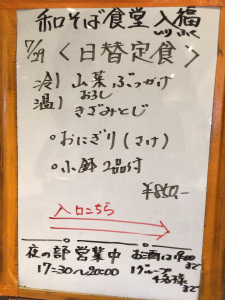 和そば食堂 入福
いり ふく
7/29 〈日替定食〉
冷) 山菜ぶっかけ
おろし
温) きざみとじ
おにぎり(さけ)
小鉢2品付
¥850-
入口こちら
夜の部 営業中
17:30〜20:00
お酒は
まで
1グループ
4名様
まで